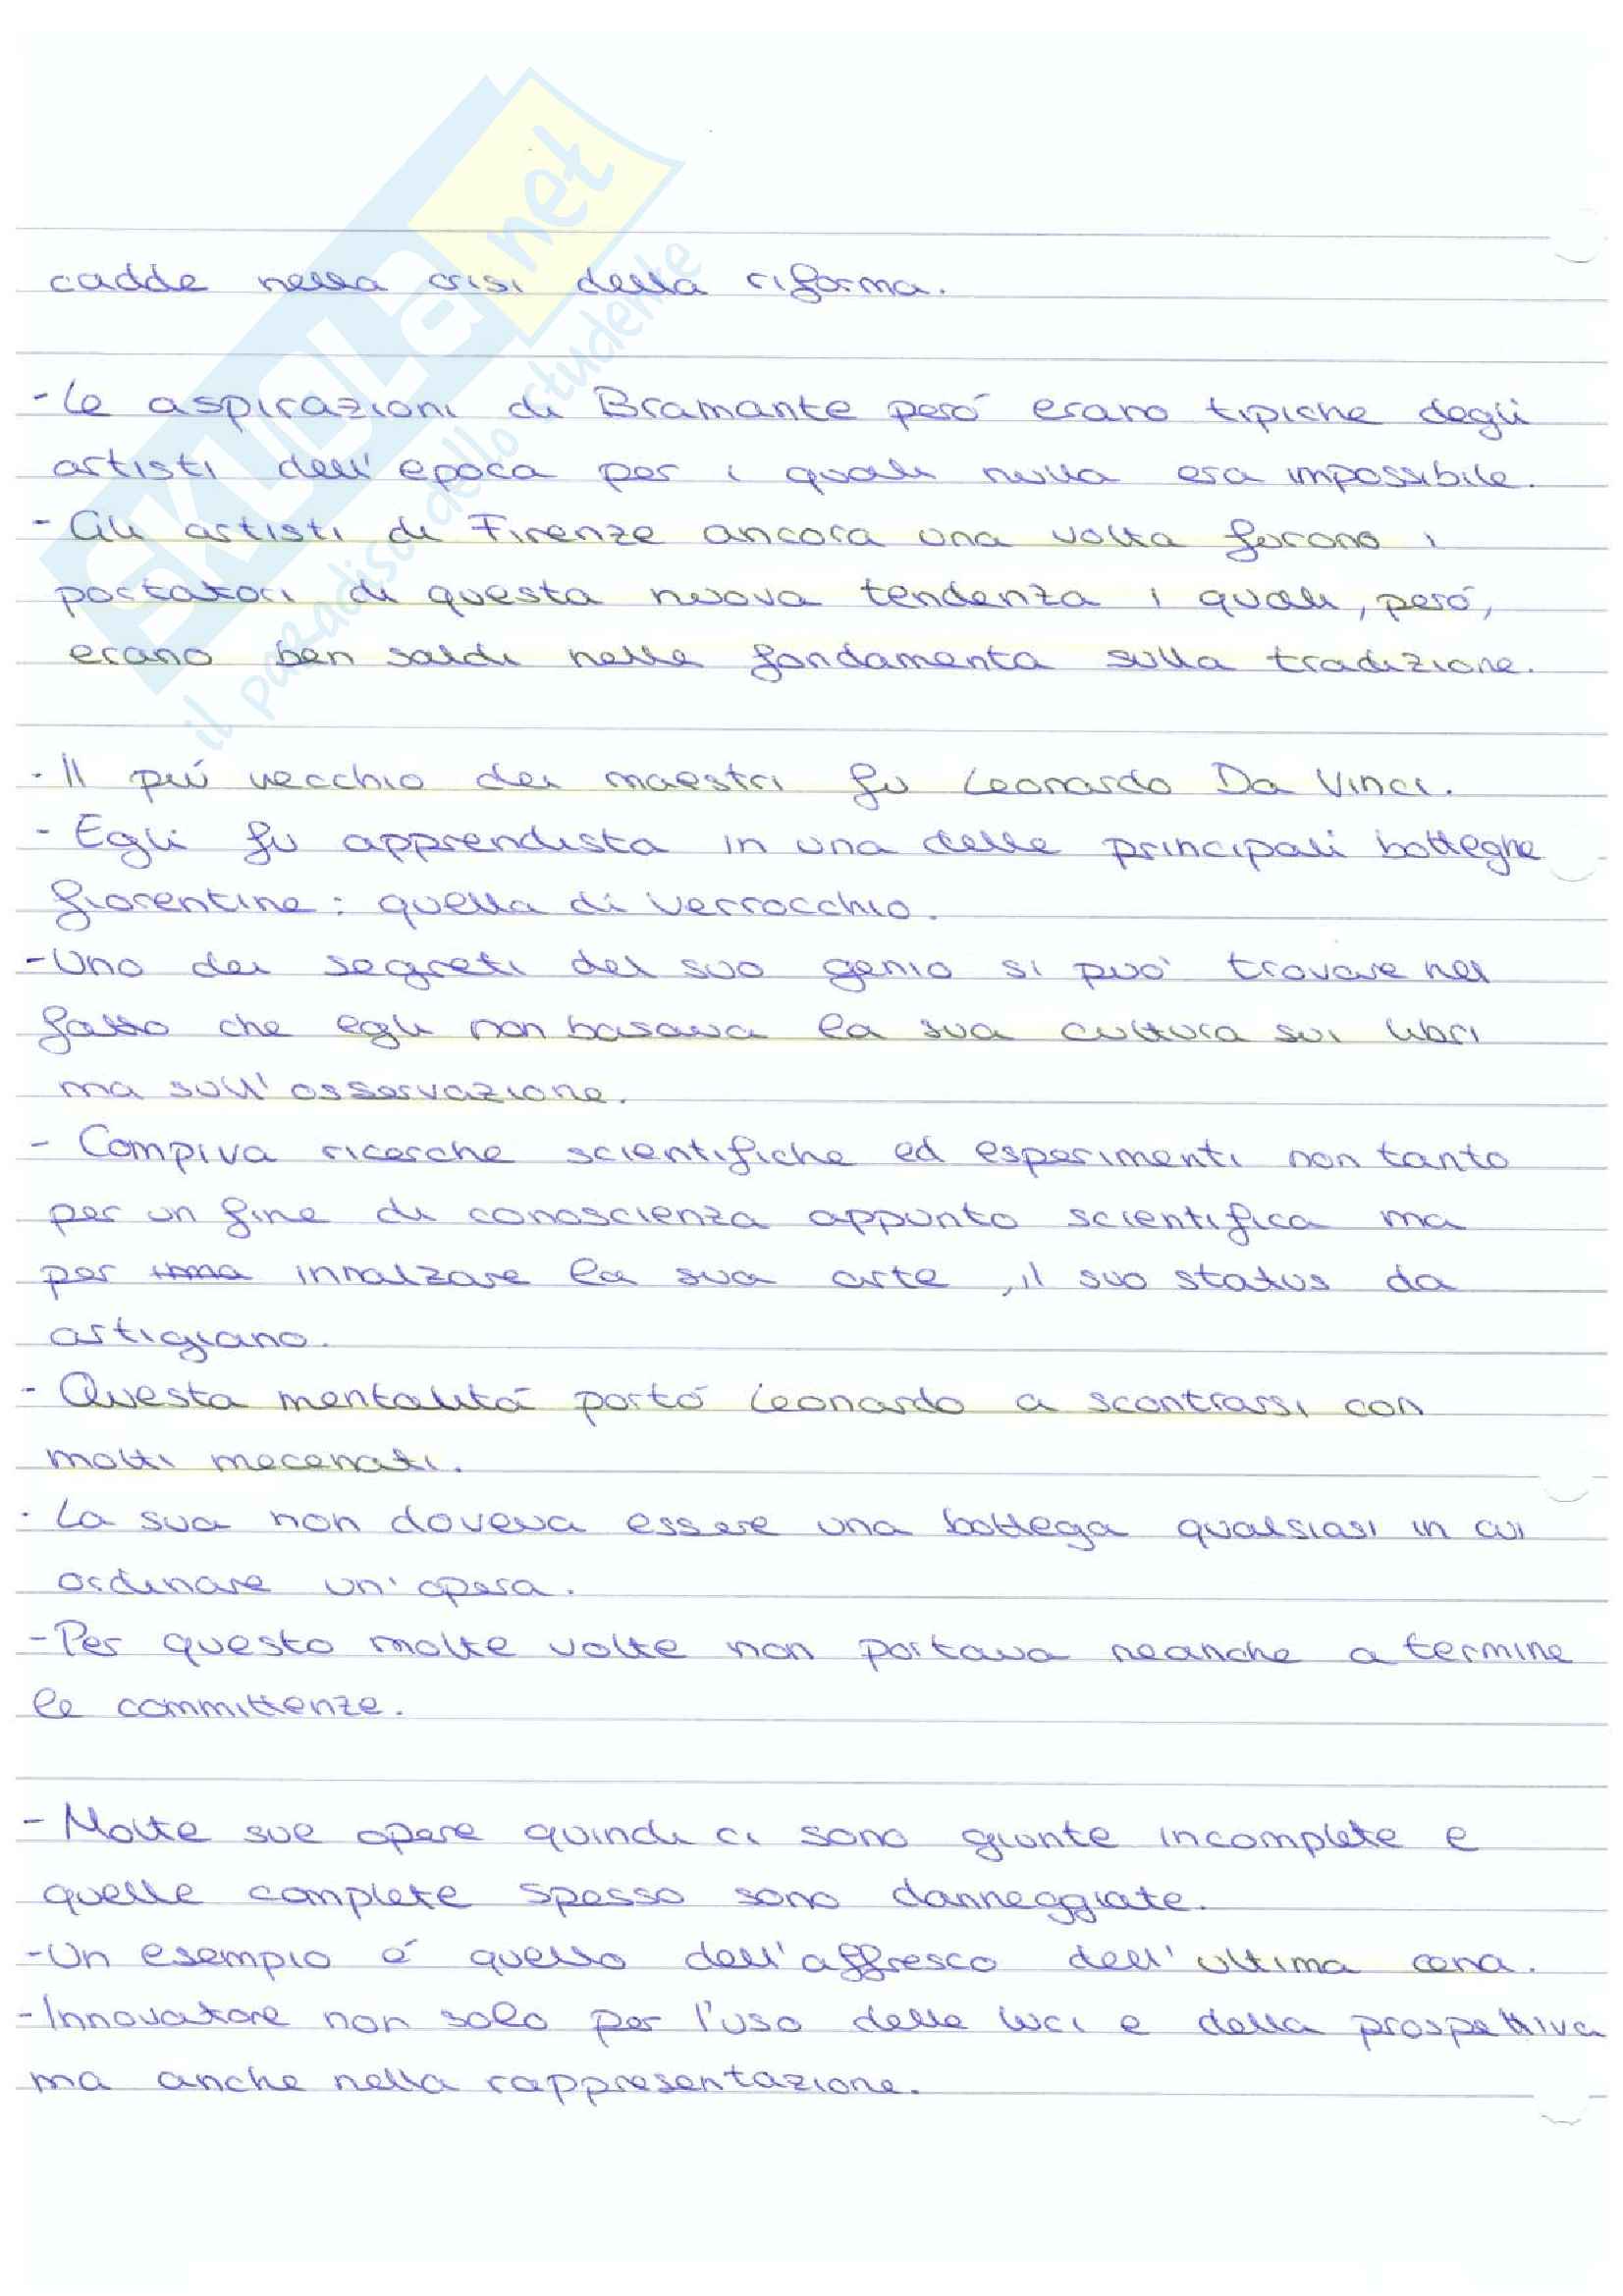 SKUOLA.net
il paradiso dello studente
cadde nella crisi della riforma.
- Le aspirazioni di Bramante peró erano tipiche degli
artisti dell'epoca per i quali nulla era impossibile.
- Gli artisti di Firenze ancora una volta furono i
portatori di questa nuova tendenza i quali, peró,
erano ben saldi nelle fondamenta sulla tradizione.
- Il piú vecchio dei maestri fu Leonardo Da Vinci.
- Egli fu apprendista in una delle principali botteghe
fiorentine: quella di Verrocchio.
- Uno dei segreti del suo genio si puo' trovare nel
fatto che egli non basava la sua cultura sui libri
ma sull'osservazione.
- Compiva ricerche scientifiche ed esperimenti non tanto
per un fine di conoscienza appunto scientifica ma
per innalzare la sua arte, il suo status da
artigiano.
- Questa mentalitá portó Leonardo a scontrarsi con
molti mecenati.
- La sua non doveva essere una bottega qualsiasi in cui
ordinare un'opera.
- Per questo molte volte non portava neanche a termine
le committenze.
- Molte sue opere quindi ci sono giunte incomplete e
quelle complete spesso sono danneggiate.
- Un esempio é quello dell'affresco dell'ultima cena.
- Innovatore non solo per l'uso delle luci e della prospettiva
ma anche nella rappresentazione.